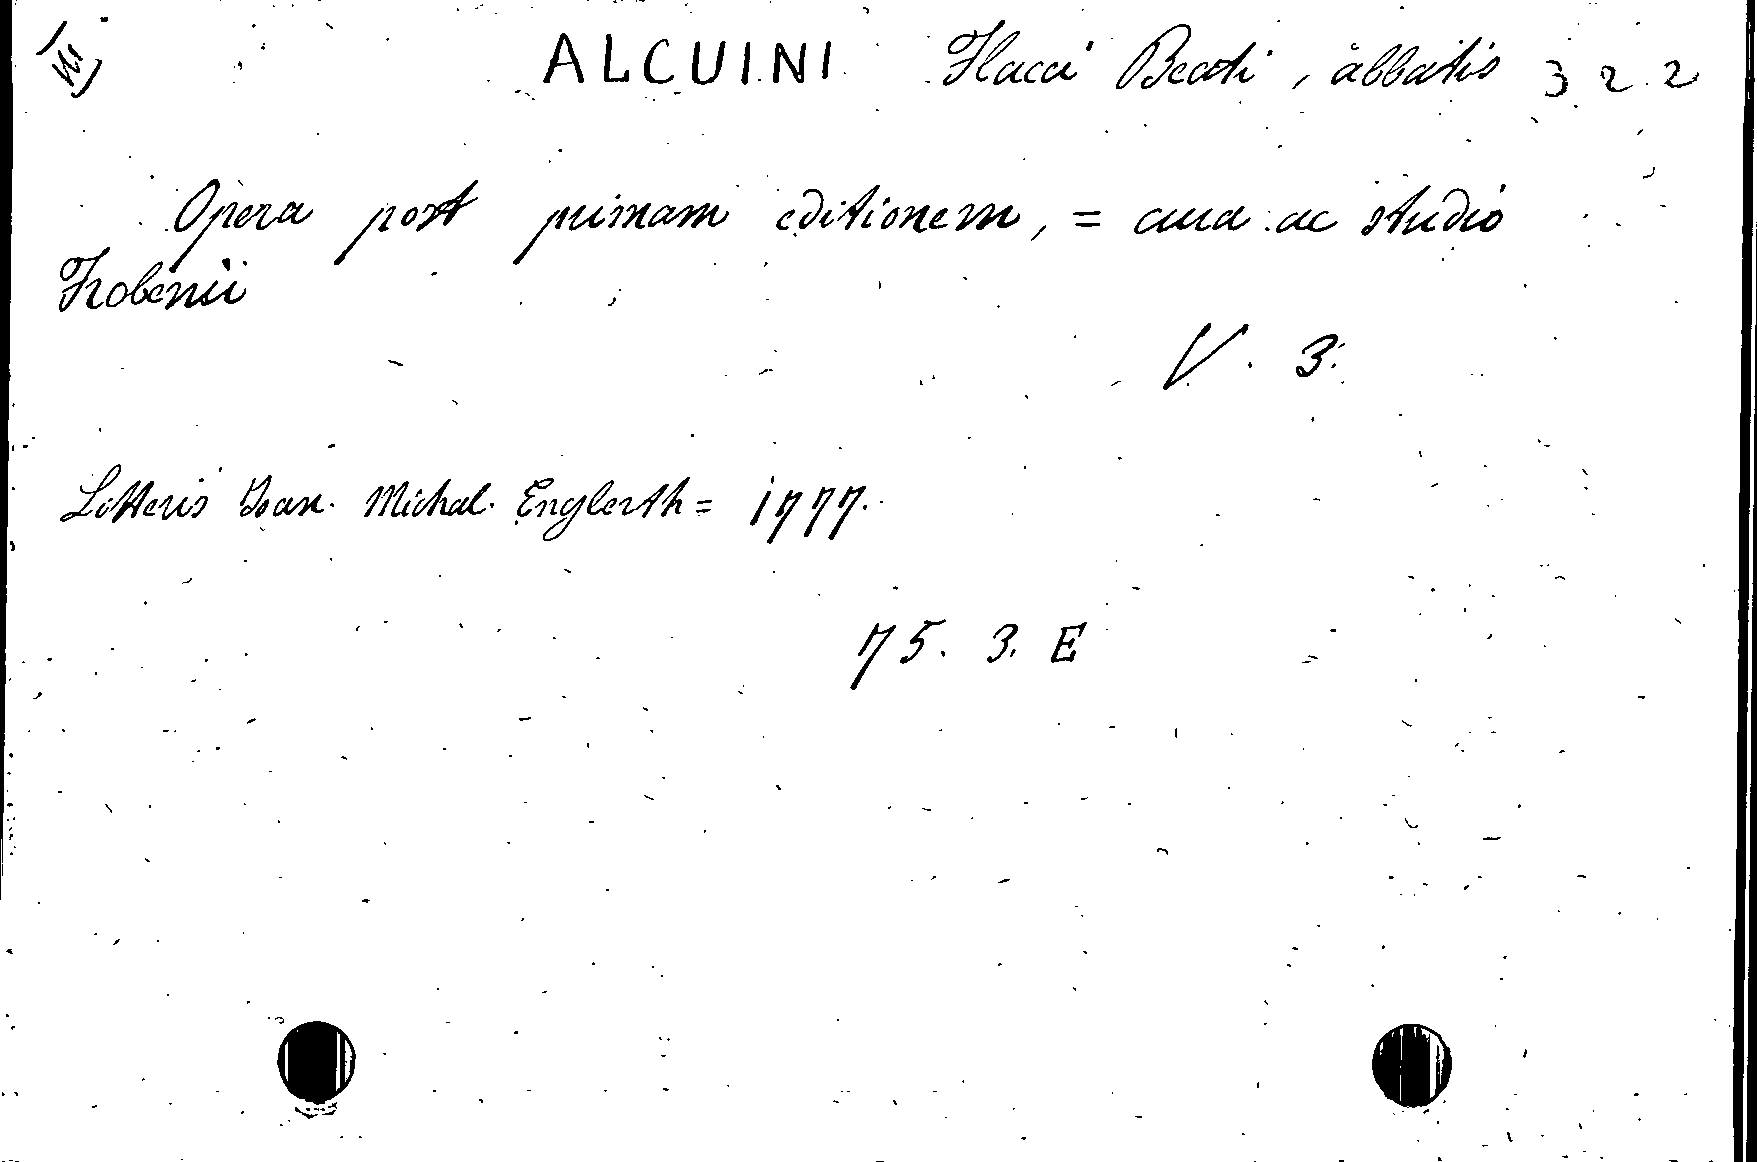 ALCUINI Flacci Beati, abbatis 322
Opera post primam editionem, = cura ac studio
Frobenii
V. 3.
Litteris Joan. Michal. Englerth = 1777.
75. 3. E